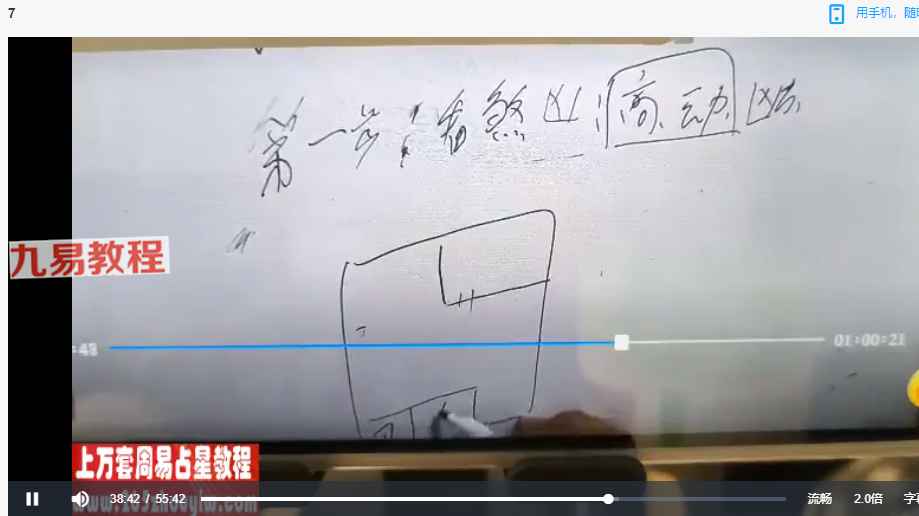 7
用手机，随
第一步：看煞凶
高 动
九易教程
:43
01:00:21
上万套周易占星教程
38:42 / 55:42
流畅 2.0倍 字